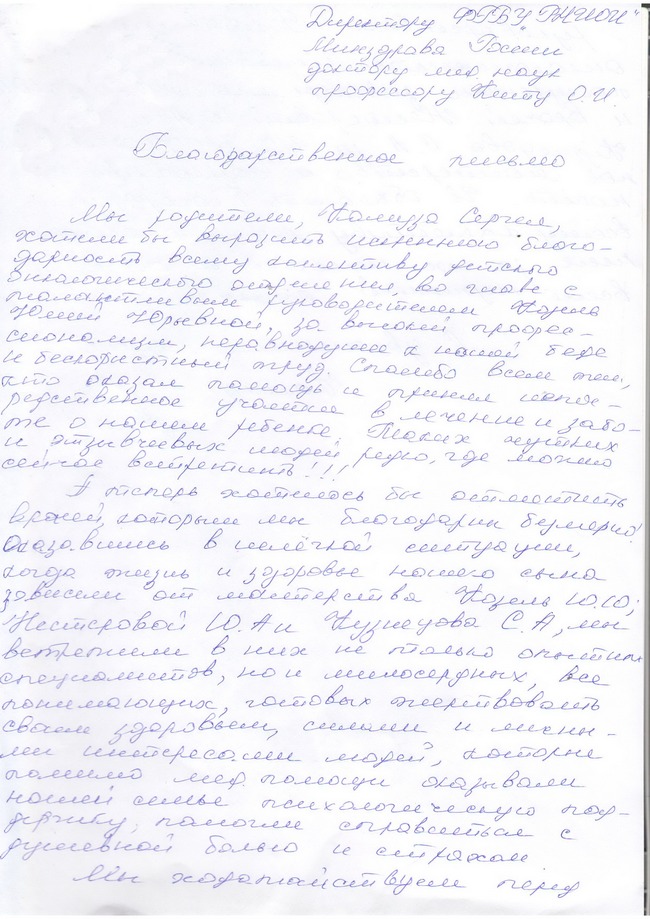 Директору ФГБУ "РНИОИ"
Минздрава России
доктору мед. наук
профессору Киту О.И.
Благодарственное письмо
Мы родители, Сергея,
хотели бы выразить искреннюю благо-
дарность всему коллективу детского
онкологического отделения, во главе с
талантливым руководителем Козель
Юлией Юрьевной, за высокий профес-
сионализм, неравнодушие к нашей беде
и бескорыстный труд. Спасибо всем тем,
кто оказал помощь и принял непос-
редственное участие в лечение и забо-
те о нашем ребенке. Таких чутких
и отзывчевых людей редко, где можно
сейчас встретить!!!
А теперь хотелось бы отметить
врачей, которым мы благодарны безмерно!
Оказавшись в нелёгкой ситуации,
когда жизнь и здоровье нашего сына
зависели от мастерства Козель Ю.Ю,
Нестеровой Ю.А и Кузнецова С.А, мы
встретили в них не только опытных
специалистов, но и милосердных, все
понимающих, готовых жертвовать
своим здоровьем, силами и личны-
ми интересами людей, которые
помимо мед. помощи оказывали
нашей семье психологическую под-
держку, помогли справиться с
душевной болью и страхом
Мы ходатайствуем перед